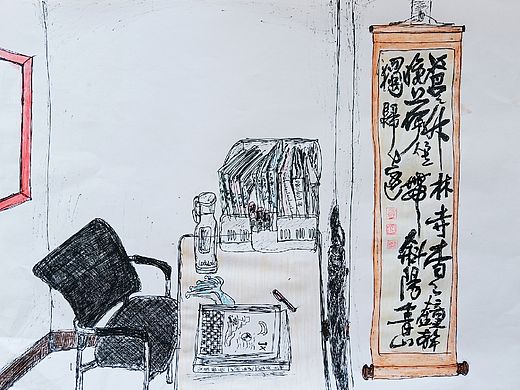 蒼々竹林寺杳々鐘聲
晚荷笠帶斜陽青山
獨歸遠